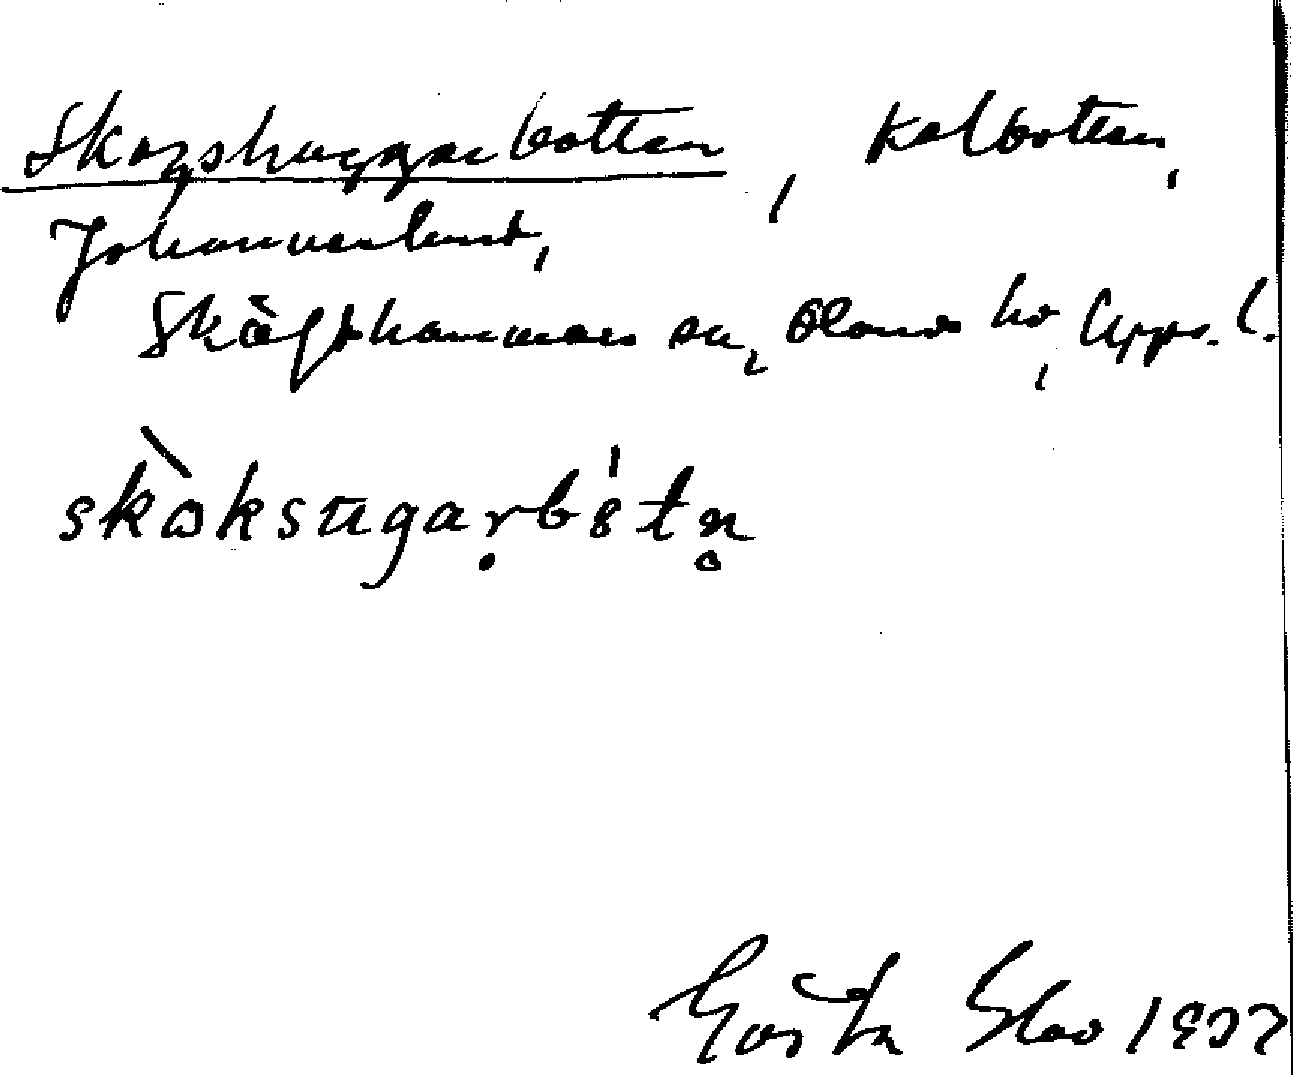 Skogshuggarbotten, kolbotten,
Johanneslund,
Skäfthammars sn, Olands hd, Upps. l.
skòksugarbótn
Gösta